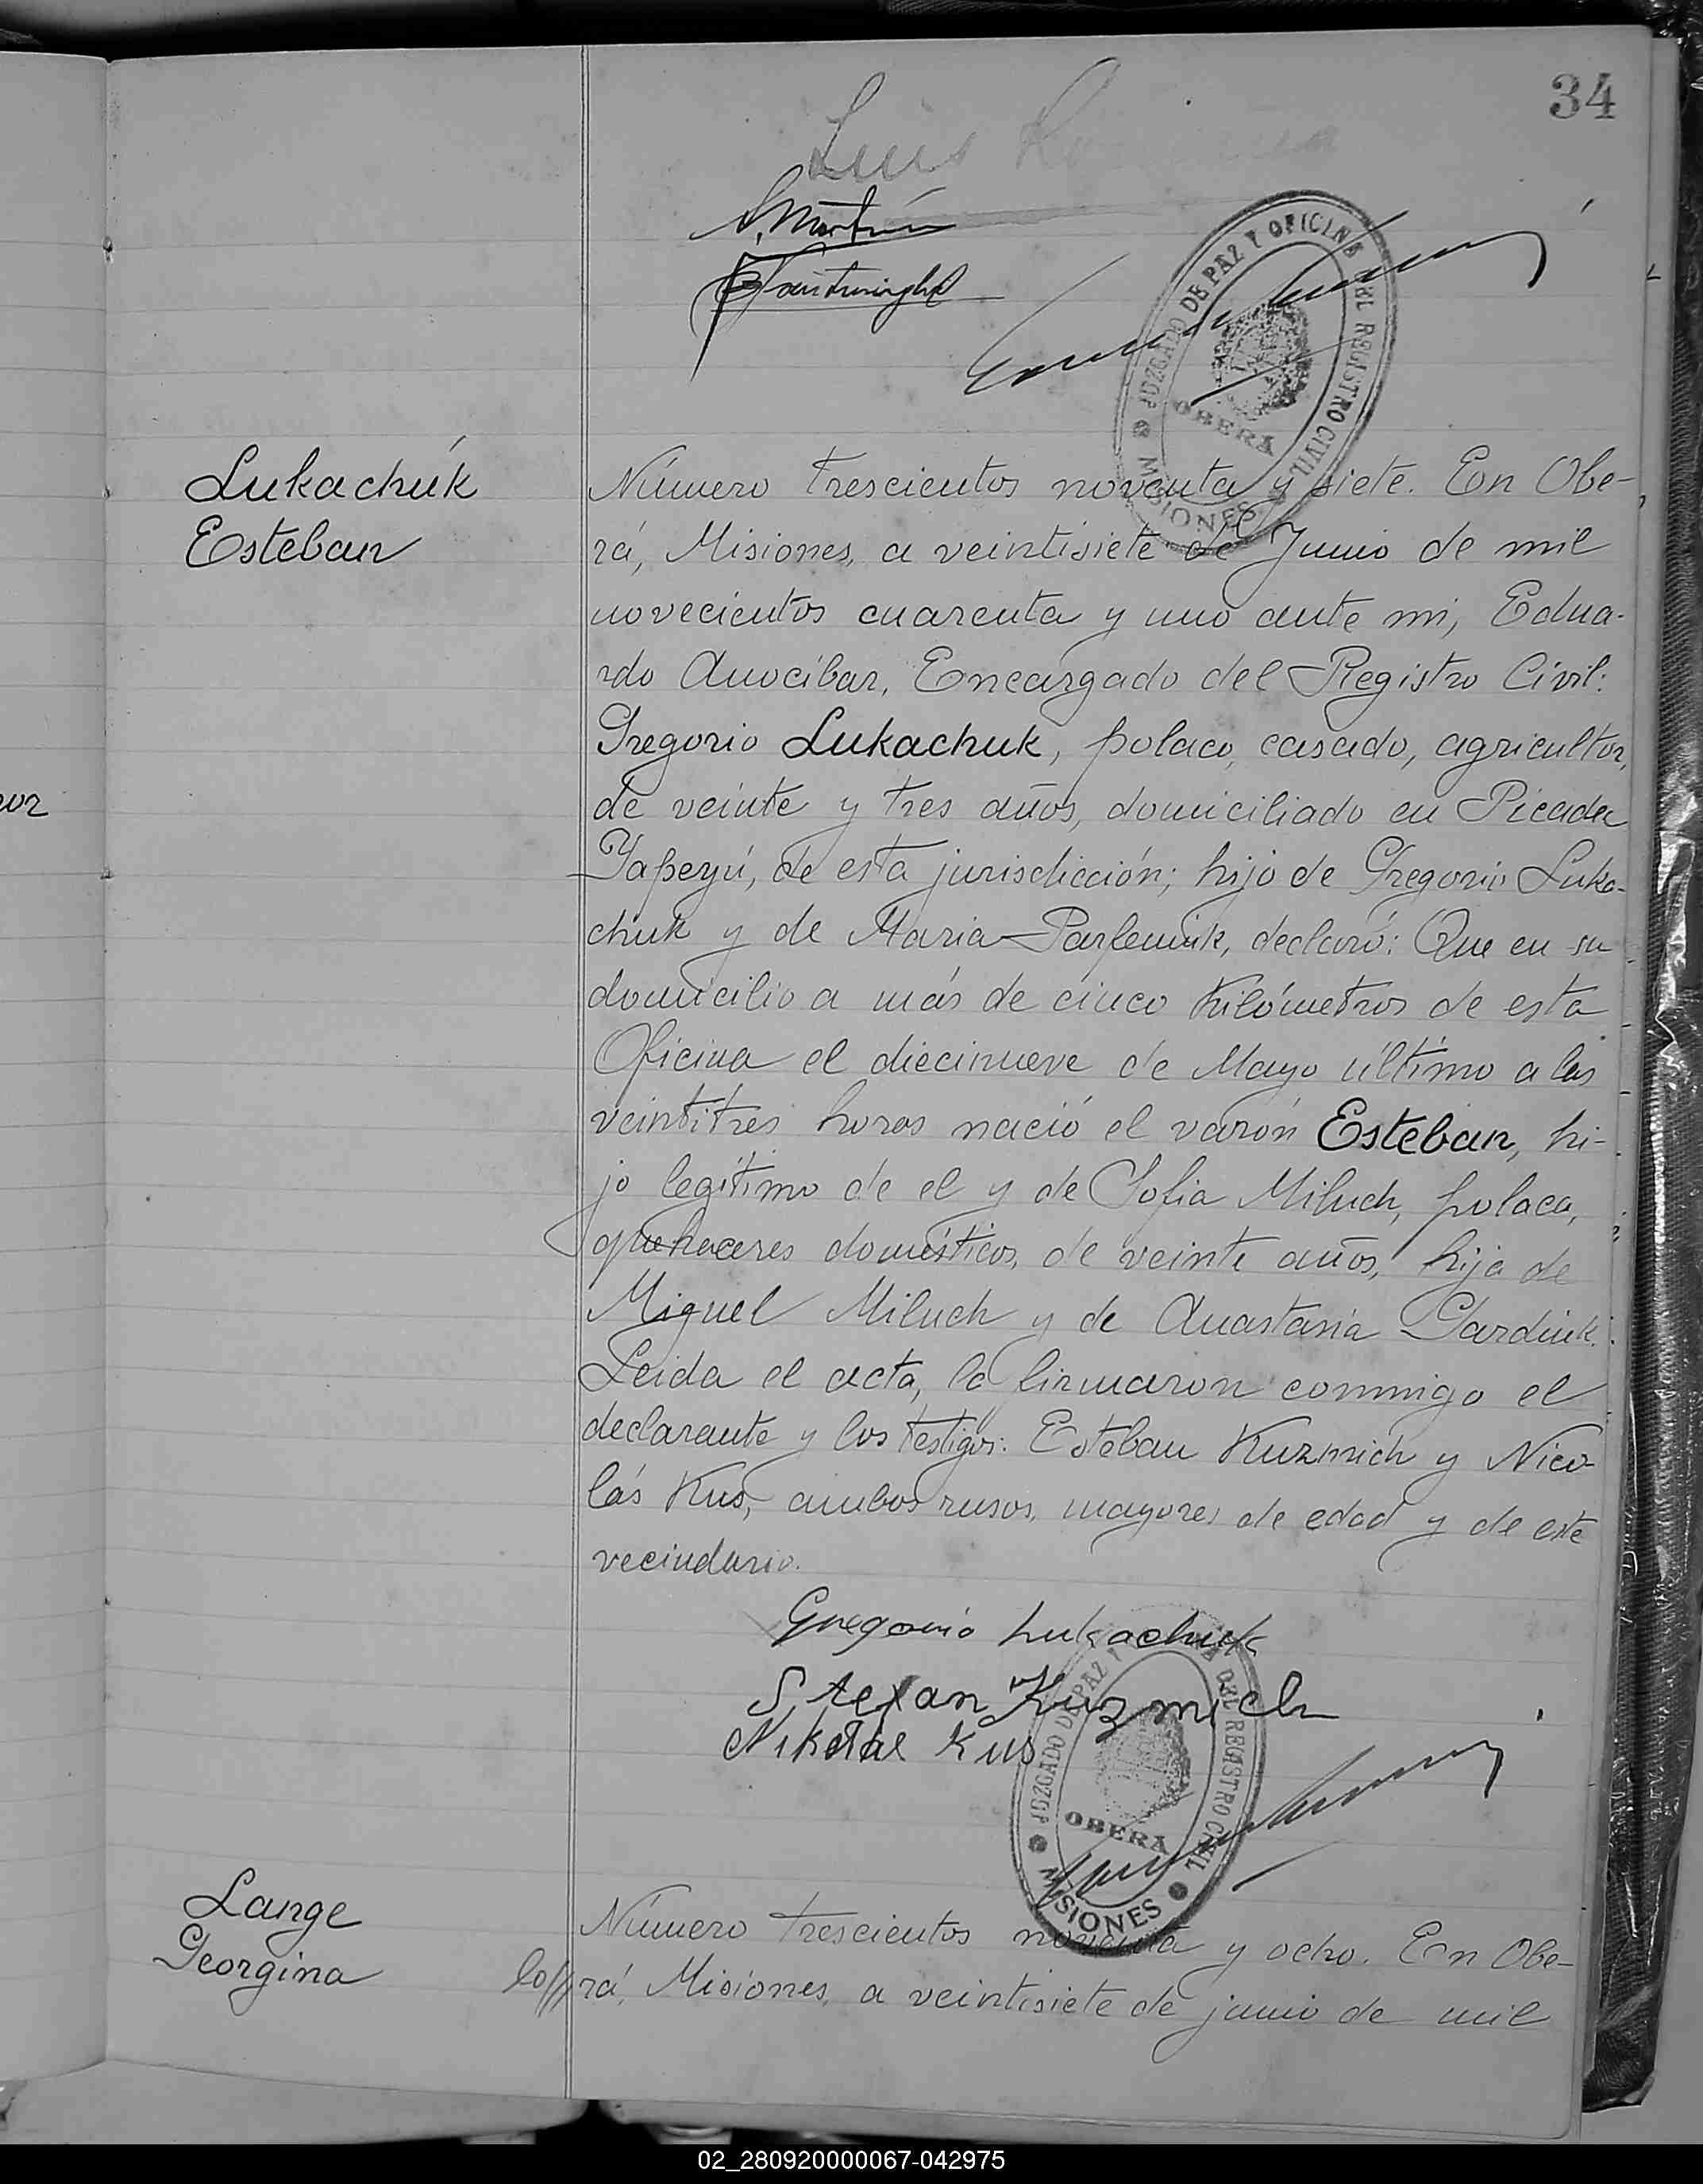 34
Luis
JUZGADO DE PAZ Y OFICINA DEL REGISTRO CIVIL
OBERA
MISIONES
Lukachúk
Esteban
Número trescientos noventa y siete. En Obe-
rá, Misiones, a veintisiete de Junio de mil
novecientos cuarenta y uno ante mi, Edua-
rdo Anocíbar, Encargado del Registro Civil:
Gregorio Lukachuk, polaco, casado, agricultor,
de veinte y tres años, domiciliado en Picada
Yapeyú, de esta jurisdicción; hijo de Gregorio Luka-
chuk y de Maria Parfeniuk, declaró: Que en su
domicilio a más de cinco kilómetros de esta
Oficina el diecinueve de Mayo último a las
veintitres horas nació el varón Esteban, hi-
jo legítimo de el y de Sofia Miluch, polaca,
quehaceres domésticos, de veinte años, hija de
Miguel Miluch y de Anastasia Gardiuk.
Leida el acta, la firmaron conmigo el
declarante y los testigos: Esteban Kuzmich y Nico-
lás Kus, ambos rusos, mayores de edad y de este
vecindario.
Gregorio Lukachuk
Stefan Kuzmich
Nikolai Kus
JUZGADO DE PAZ Y OFICINA DEL REGISTRO CIVIL
OBERA
MISIONES
Lange
Georgina
Número trescientos noventa y ocho. En Obe-
rá, Misiones, a veintisiete de junio de mil
02_280920000067-042975